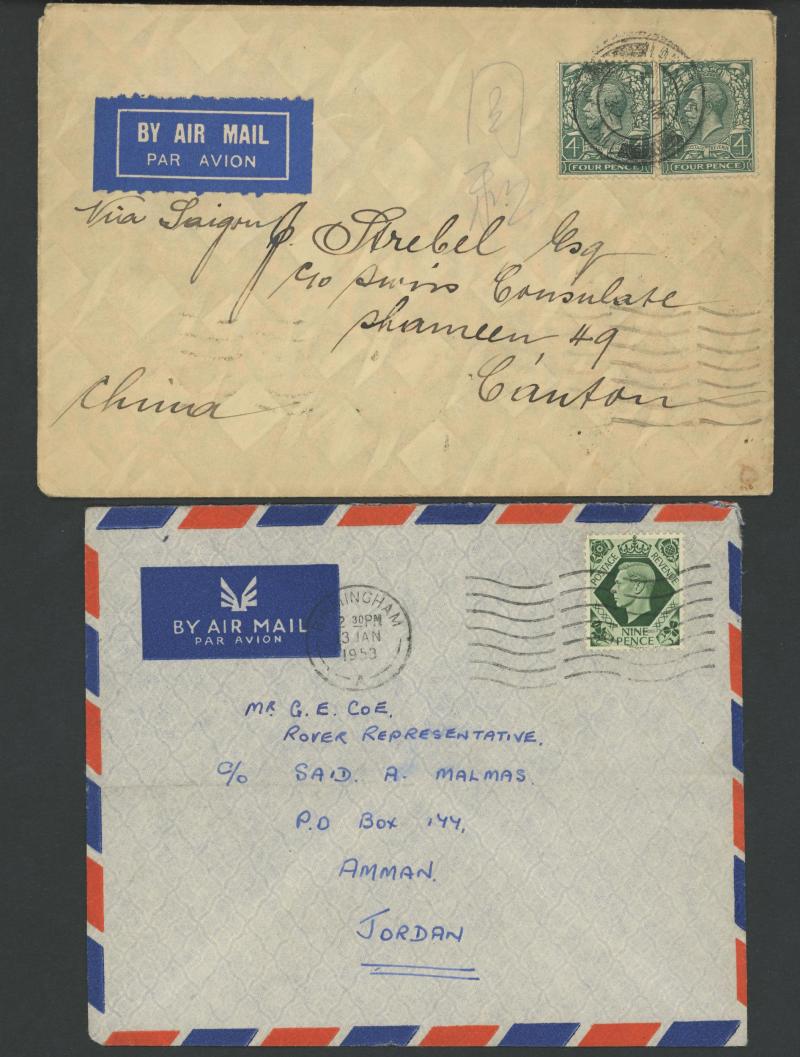 BY AIR MAIL
PAR AVION
4 FOUR PENCE 4
POSTAGE REVENUE
4 FOUR PENCE 4
Viâ Saigon
Strebel Esq
c/o Swiss Consulate
Shameen 49
Canton
China
BY AIR MAIL
PAR AVION
BIRMINGHAM
2 30PM
3 JAN
1953
A
POSTAGE REVENUE
NINE
PENCE
MR. G. E. COE.
ROVER REPRESENTATIVE.
C/o SAID. A. MALMAS.
P.O BOX 144,
AMMAN.
JORDAN